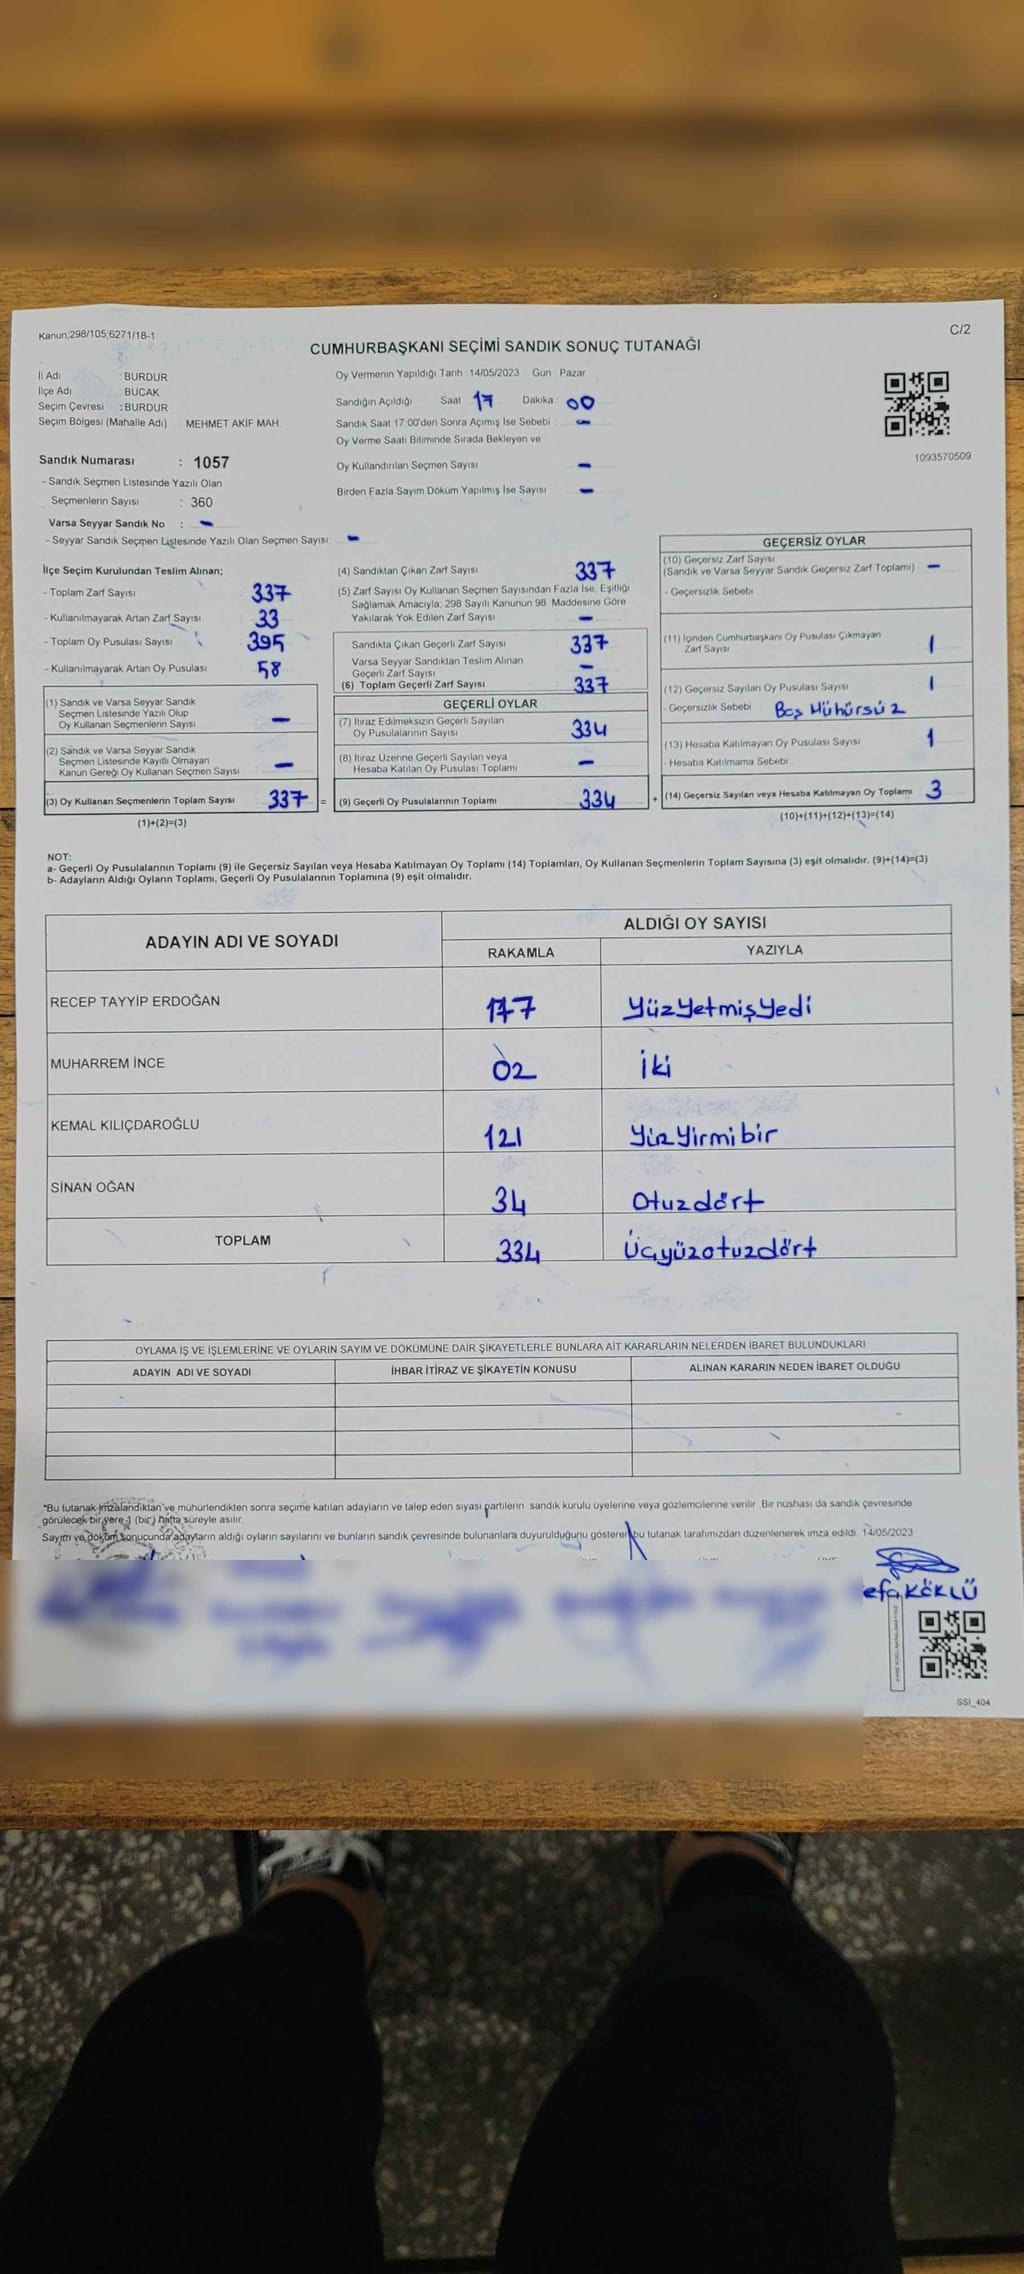 Kanun,298/105,6271/18-1
C/2
CUMHURBAŞKANI SEÇİMİ SANDIK SONUÇ TUTANAĞI
İl Adı : BURDUR
İlçe Adı : BUCAK
Seçim Çevresi : BURDUR
Seçim Bölgesi (Mahalle Adı) MEHMET AKİF MAH.
Oy Vermenin Yapıldığı Tarih :14/05/2023 Gün : Pazar
Sandığın Açıldığı Saat : 17 Dakika : 00
Sandık Saat 17:00'den Sonra Açımış İse Sebebi : -
Oy Verme Saati Bitiminde Sırada Bekleyen ve
Oy Kullandırılan Seçmen Sayısı -
Birden Fazla Sayım Döküm Yapılmış İse Sayısı -
1093570509
Sandık Numarası : 1057
- Sandık Seçmen Listesinde Yazılı Olan
Seçmenlerin Sayısı : 360
Varsa Seyyar Sandık No : -
- Seyyar Sandık Seçmen Listesinde Yazılı Olan Seçmen Sayısı: -
İlçe Seçim Kurulundan Teslim Alınan;
- Toplam Zarf Sayısı 337
- Kullanılmayarak Artan Zarf Sayısı 33
- Toplam Oy Pusulası Sayısı 395
- Kullanılmayarak Artan Oy Pusulası 58
(1) Sandık ve Varsa Seyyar Sandık
Seçmen Listesinde Yazılı Olup
Oy Kullanan Seçmenlerin Sayısı -
(2) Sandık ve Varsa Seyyar Sandık
Seçmen Listesinde Kayıtlı Olmayan
Kanun Gereği Oy Kullanan Seçmen Sayısı -
(3) Oy Kullanan Seçmenlerin Toplam Sayısı 337 =
(1)+(2)=(3)
(4) Sandıktan Çıkan Zarf Sayısı 337
(5) Zarf Sayısı Oy Kullanan Seçmen Sayısından Fazla İse, Eşitliği
Sağlamak Amacıyla; 298 Sayılı Kanunun 98. Maddesine Göre
Yakılarak Yok Edilen Zarf Sayısı -
Sandıkta Çıkan Geçerli Zarf Sayısı 337
Varsa Seyyar Sandıktan Teslim Alınan
Geçerli Zarf Sayısı -
(6) Toplam Geçerli Zarf Sayısı 337
GEÇERLİ OYLAR
(7) İtiraz Edilmeksizin Geçerli Sayılan
Oy Pusulalarının Sayısı 334
(8) İtiraz Üzerine Geçerli Sayılan veya
Hesaba Katılan Oy Pusulası Toplamı -
(9) Geçerli Oy Pusulalarının Toplamı 334 +
GEÇERSİZ OYLAR
(10) Geçersiz Zarf Sayısı
(Sandık ve Varsa Seyyar Sandık Geçersiz Zarf Toplamı) -
- Geçersizlik Sebebi
(11) İçinden Cumhurbaşkanı Oy Pusulası Çıkmayan
Zarf Sayısı 1
(12) Geçersiz Sayılan Oy Pusulası Sayısı 1
- Geçersizlik Sebebi Boş Mühürsüz
(13) Hesaba Katılmayan Oy Pusulası Sayısı 1
- Hesaba Katılmama Sebebi
(14) Geçersiz Sayılan veya Hesaba Katılmayan Oy Toplamı 3
(10)+(11)+(12)+(13)=(14)
NOT:
a- Geçerli Oy Pusulalarının Toplamı (9) ile Geçersiz Sayılan veya Hesaba Katılmayan Oy Toplamı (14) Toplamları, Oy Kullanan Seçmenlerin Toplam Sayısına (3) eşit olmalıdır. (9)+(14)=(3)
b- Adayların Aldığı Oyların Toplamı, Geçerli Oy Pusulalarının Toplamına (9) eşit olmalıdır.
ADAYIN ADI VE SOYADI
ALDIĞI OY SAYISI
RAKAMLA YAZIYLA
RECEP TAYYİP ERDOĞAN 177 YüzYetmişYedi
MUHARREM İNCE 02 İki
KEMAL KILIÇDAROĞLU 121 YüzYirmibir
SİNAN OĞAN 34 Otuzdört
TOPLAM 334 Üçyüzotuzdört
OYLAMA İŞ VE İŞLEMLERİNE VE OYLARIN SAYIM VE DÖKÜMÜNE DAİR ŞİKAYETLERLE BUNLARA AİT KARARLARIN NELERDEN İBARET BULUNDUKLARI
ADAYIN ADI VE SOYADI İHBAR İTİRAZ VE ŞİKAYETİN KONUSU ALINAN KARARIN NEDEN İBARET OLDUĞU
"Bu tutanak imzalandıktan ve mühürlendikten sonra seçime katılan adayların ve talep eden siyasi partilerin sandık kurulu üyelerine veya gözlemcilerine verilir. Bir nüshası da sandık çevresinde
görülecek bir yere 1 (bir) hafta süreyle asılır.
Sayım ve döküm sonucunda adayların aldığı oyların sayılarını ve bunların sandık çevresinde bulunanlara duyurulduğunu gösteren bu tutanak tarafımızdan düzenlenerek imza edildi. 14/05/2023
efa KÖKLÜ
SSI_404